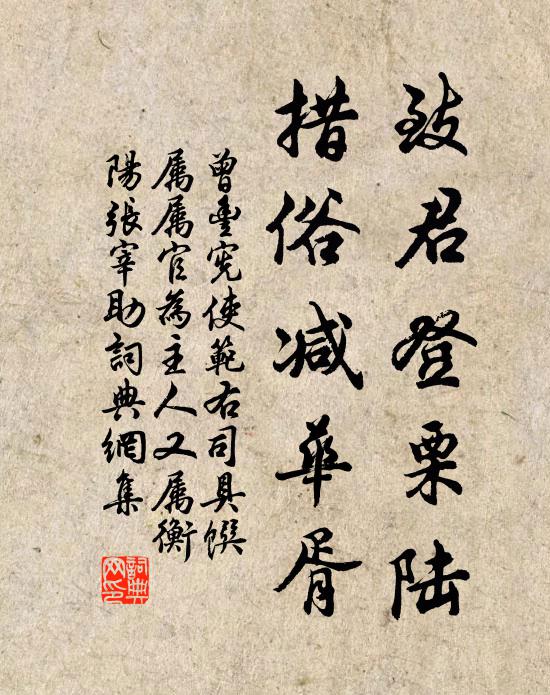 致君登栗陆
措俗减华胥
曾丰宪使范右司具馔
属属官為主人又属衡
陽張宰助詞典網集
詞典网印